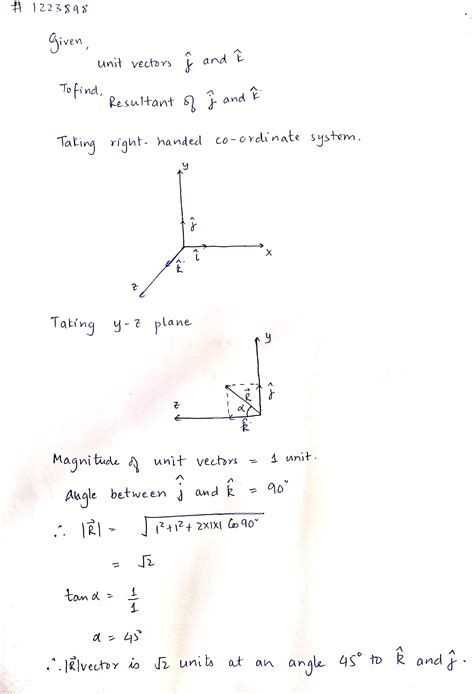 # 1223898
Given,
unit vectors ĵ and k̂
To find,
Resultant of ĵ and k̂
Taking right-handed co-ordinate system.
y
ĵ
î
k̂
x
z
Taking y-z plane
y
R⃗
ĵ
α
z
k̂
Magnitude of unit vectors = 1 unit.
angle between ĵ and k̂ = 90°
∴ |R⃗| = √(1²+1²+2×1×1 Cos90°)
= √2
tanα = 1/1
α = 45°
∴ |R⃗| vector is √2 units at an angle 45° to k̂ and ĵ.